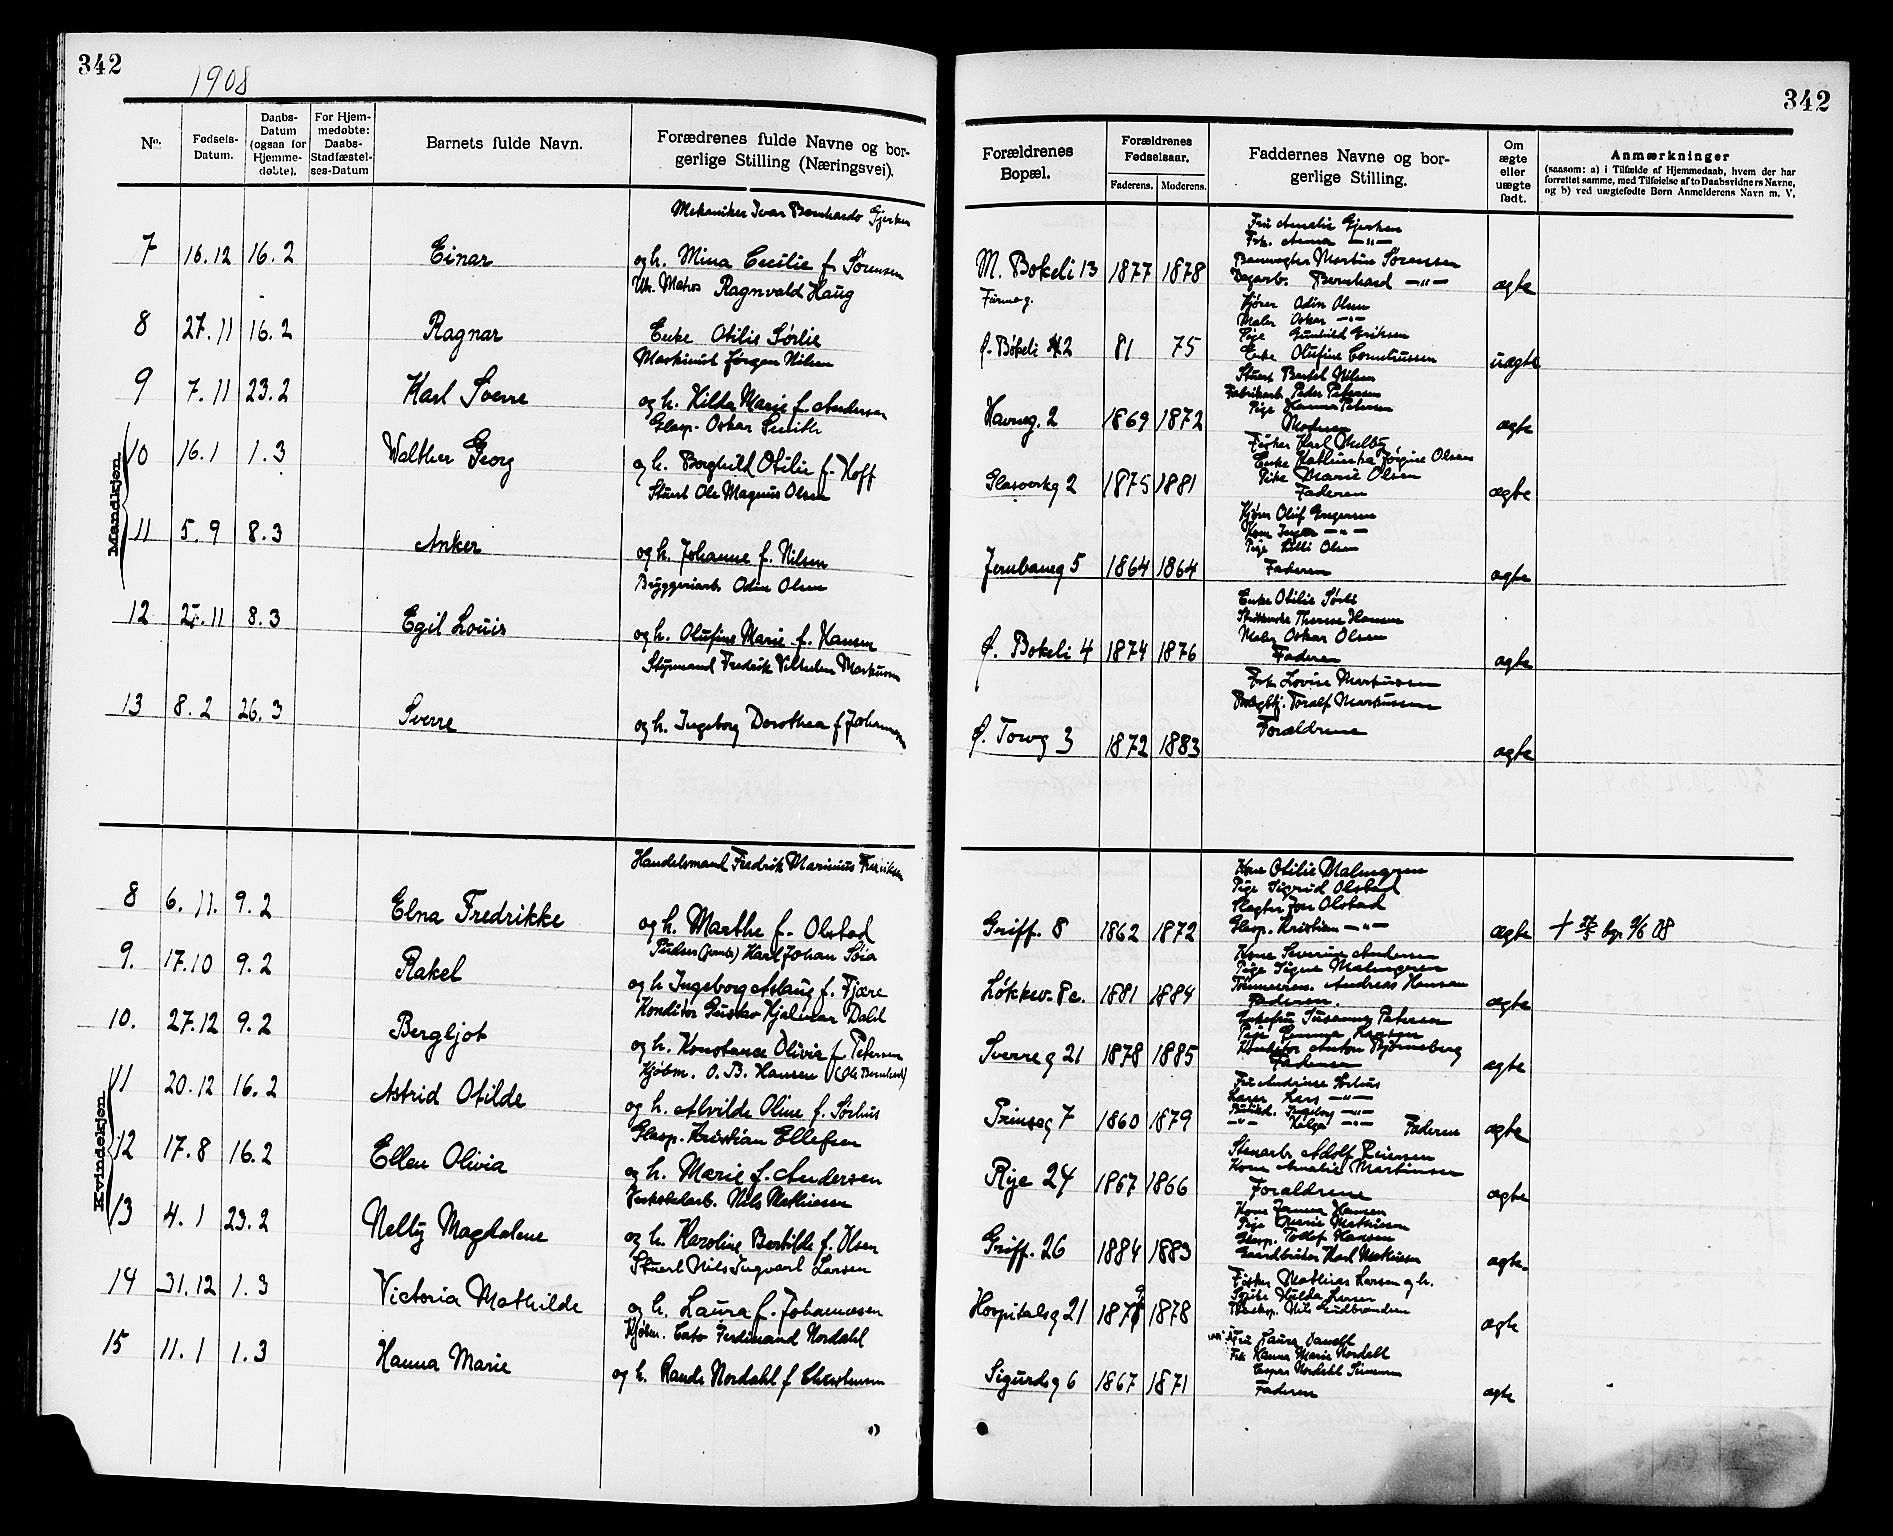 342
1908
No.
Fødsels-
Datum.
Daabs-
Datum
(ogsaa for
Hjemme-
døbte).
For Hjem-
medøbte:
Daabs-
Stadfæstel-
ses-Datum
Barnets fulde Navn.
Forældrenes fulde Navne og bor-
gerlige Stilling (Næringsvei).
Mandkjøn.
Mekaniker Ivar Bernhardo Gjerken
7 16.12 16.2 Einar og h. Mina Cecilie f. Sørensen
Uh. Matros Ragnvald Haug
8 27.11 16.2 Ragnar Enke Otilie Sørlie
Maskinist Jørgen Nilsen
9 7.11 23.2 Karl Sverre og h. Hilda Marie f. Andersen
Glasp. Oskar Smith
10 16.1 1.3 Walther Georg og h. Borghild Otilie f. Hoff
Stuert Ole Magnus Olsen
11 5.9 8.3 Anker og h. Johanne f. Nilsen
Bryggeriarb. Odin Olsen
12 25.11 8.3 Egil Louis og h. Olufine Marie f. Hansen
Styrmand Fredrik Vilhelm Markussen
13 8.2 26.3 Sverre og h. Ingeborg Dorothea f. Johannesen
Kvindekjøn.
Handelsmand Fredrik Marinius Fredriksen
8 6.11. 9.2 Elna Fredrikke og h. Marthe f. Olstad
Karl Johan Søia
9. 17.10 9.2 Rakel og h Ingeborg Aslaug f. Fjære
Konditor Gustav Hjalmar Dahl
10. 27.12 9.2 Bergljot og h. Konstance Olivie f. Petersen
Kjøbm. O. B. Hansen (Ole Bernhard)
11 20.12 16.2 Astrid Otilde og h. Alvilde Oline f. Sørhus
Glasp. Kristian Ellefsen
12 17.8 16.2 Ellen Olivia og h. Marie f. Andersen
Verkstedarb. Nils Mathisen
13 4.1 23.2 Nelly Magdalene og h. Karoline Bertilde f. Olsen
Stuert Nils Ingvart Larsen
14 31.12 1.3 Victoria Mathilde og h. Laura f. Johannesen
Kjøbm. Cato Ferdinand Nordahl
15 11.1 1.3 Hanna Marie og h. Randi Nordahl f. Christensen
342
Forældrenes
Bopæl.
Forældrenes
Fødselsaar.
Faderens. Moderens.
Faddernes Navne og bor-
gerlige Stilling.
Om
ægte
eller
uægte
født.
Anmærkninger
(saasom: a) i Tilfælde af Hjemmedaab, hvem der har
forrettet samme, med Tilføielse af to Daabsvidners Navne,
og b) ved uægtefødte Børn Anmelderens Navn m. V.
Fru Amalie Gjerken
Frk. Anna —"—
Banevogter Martin Sørensen
M. Bøkeli 13 1877 1878 Dagarb. Bernhard —"— ægte
Farmeg.
Kjører Odin Olsen
Maler Oskar —"—
Pige Gunhild Eriksen
Ø. Bøkeli 42 81 75 Enke Olufine Corneliussen uægte
Stuert Bertel Nilsen
Fabrikarb. Peder Petersen
Pige Hanna Petersen
Havneg. 2 1869 1872 Moderen ægte
Fisker Karl Melby
Enke Kathinka Jørgine Olsen
Pike Marie Olsen
Glasverkg 2 1875 1881 Faderen ægte
Kjører Oluf Gregersen
Kone Inga —"—
Pige Lilli Olsen
Jernbaneg 5 1864 1864 Faderen ægte
Enke Otilie Sørli
Therese Hansen
Maler Oskar Olsen
Ø. Bøkeli 4 1874 1876 Faderen ægte
Frk. Lovise Markussen
Toralf Markussen
Forældrene
Ø. Torvg 3 1872 1883 ægte
Kone Otilie Malmgren
Pige Sigrid Olstad
Slagter Jon Olstad
Griff. 8 1862 1872 Glasp. Kristian —"— ægte
Kone Severine Andersen
Pige Signe Malmgren
Tømmerm. Andreas Hansen
Løkkev. 8c. 1881 1884 Faderen. ægte
Susanna Petersen
Pige Emma Larsen
Konditor Anton Bjørneberg
Sverreg 21 1878 1885 Faderen ægte
Fru Andrine Sørhus
Lars —"—
Ingeborg —"—
Prinseg 7 1860 1879 —"— Helga —"— Faderen ægte
Stenarb. Adolf Reiersen
Kone Amalie Martinsen
Rije 24 1867 1866 Forældrene ægte
Kone Hansen
Pige Marie Mathisen
Glasp. Tollef Hansen
Griff. 26 1884 1883 Gaardbruker Karl Mathisen ægte
Fisker Mathias Larsen og h.
Hulda Larsen
Hospitalsg 21 1878 Nils Gudbrandsen ægte
Fru Laura Vandtl
Frk Hanna Marie Nordahl
Casper Nordahl Simonsen
Sigurdsg 6 1867 1871 Faderen ægte